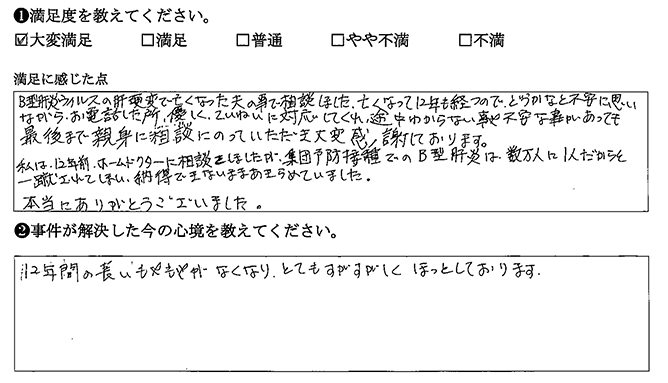 ❶満足度を教えてください。
☑大変満足 □満足 □普通 □やや不満 □不満
満足に感じた点
B型肝炎ウイルスの肝硬変で亡くなった夫の事で相談しました。亡くなって12年も経つので、どうかなと不安に思い
ながら、お電話した所、優しく、ていねいに対応してくれ、途中わからない事や不安な事があっても
最後まで親身に相談にのっていただき大変感謝しております。
私は、12年前、ホームドクターに相談をしましたが、集団予防接種でのB型肝炎は、数万人に1人だからと
一蹴されてしまい、納得できないままあきらめていました。
本当にありがとうございました。
❷事件が解決した今の心境を教えてください。
12年間の長いもやもやがなくなり、とてもすがすがしくほっとしております。